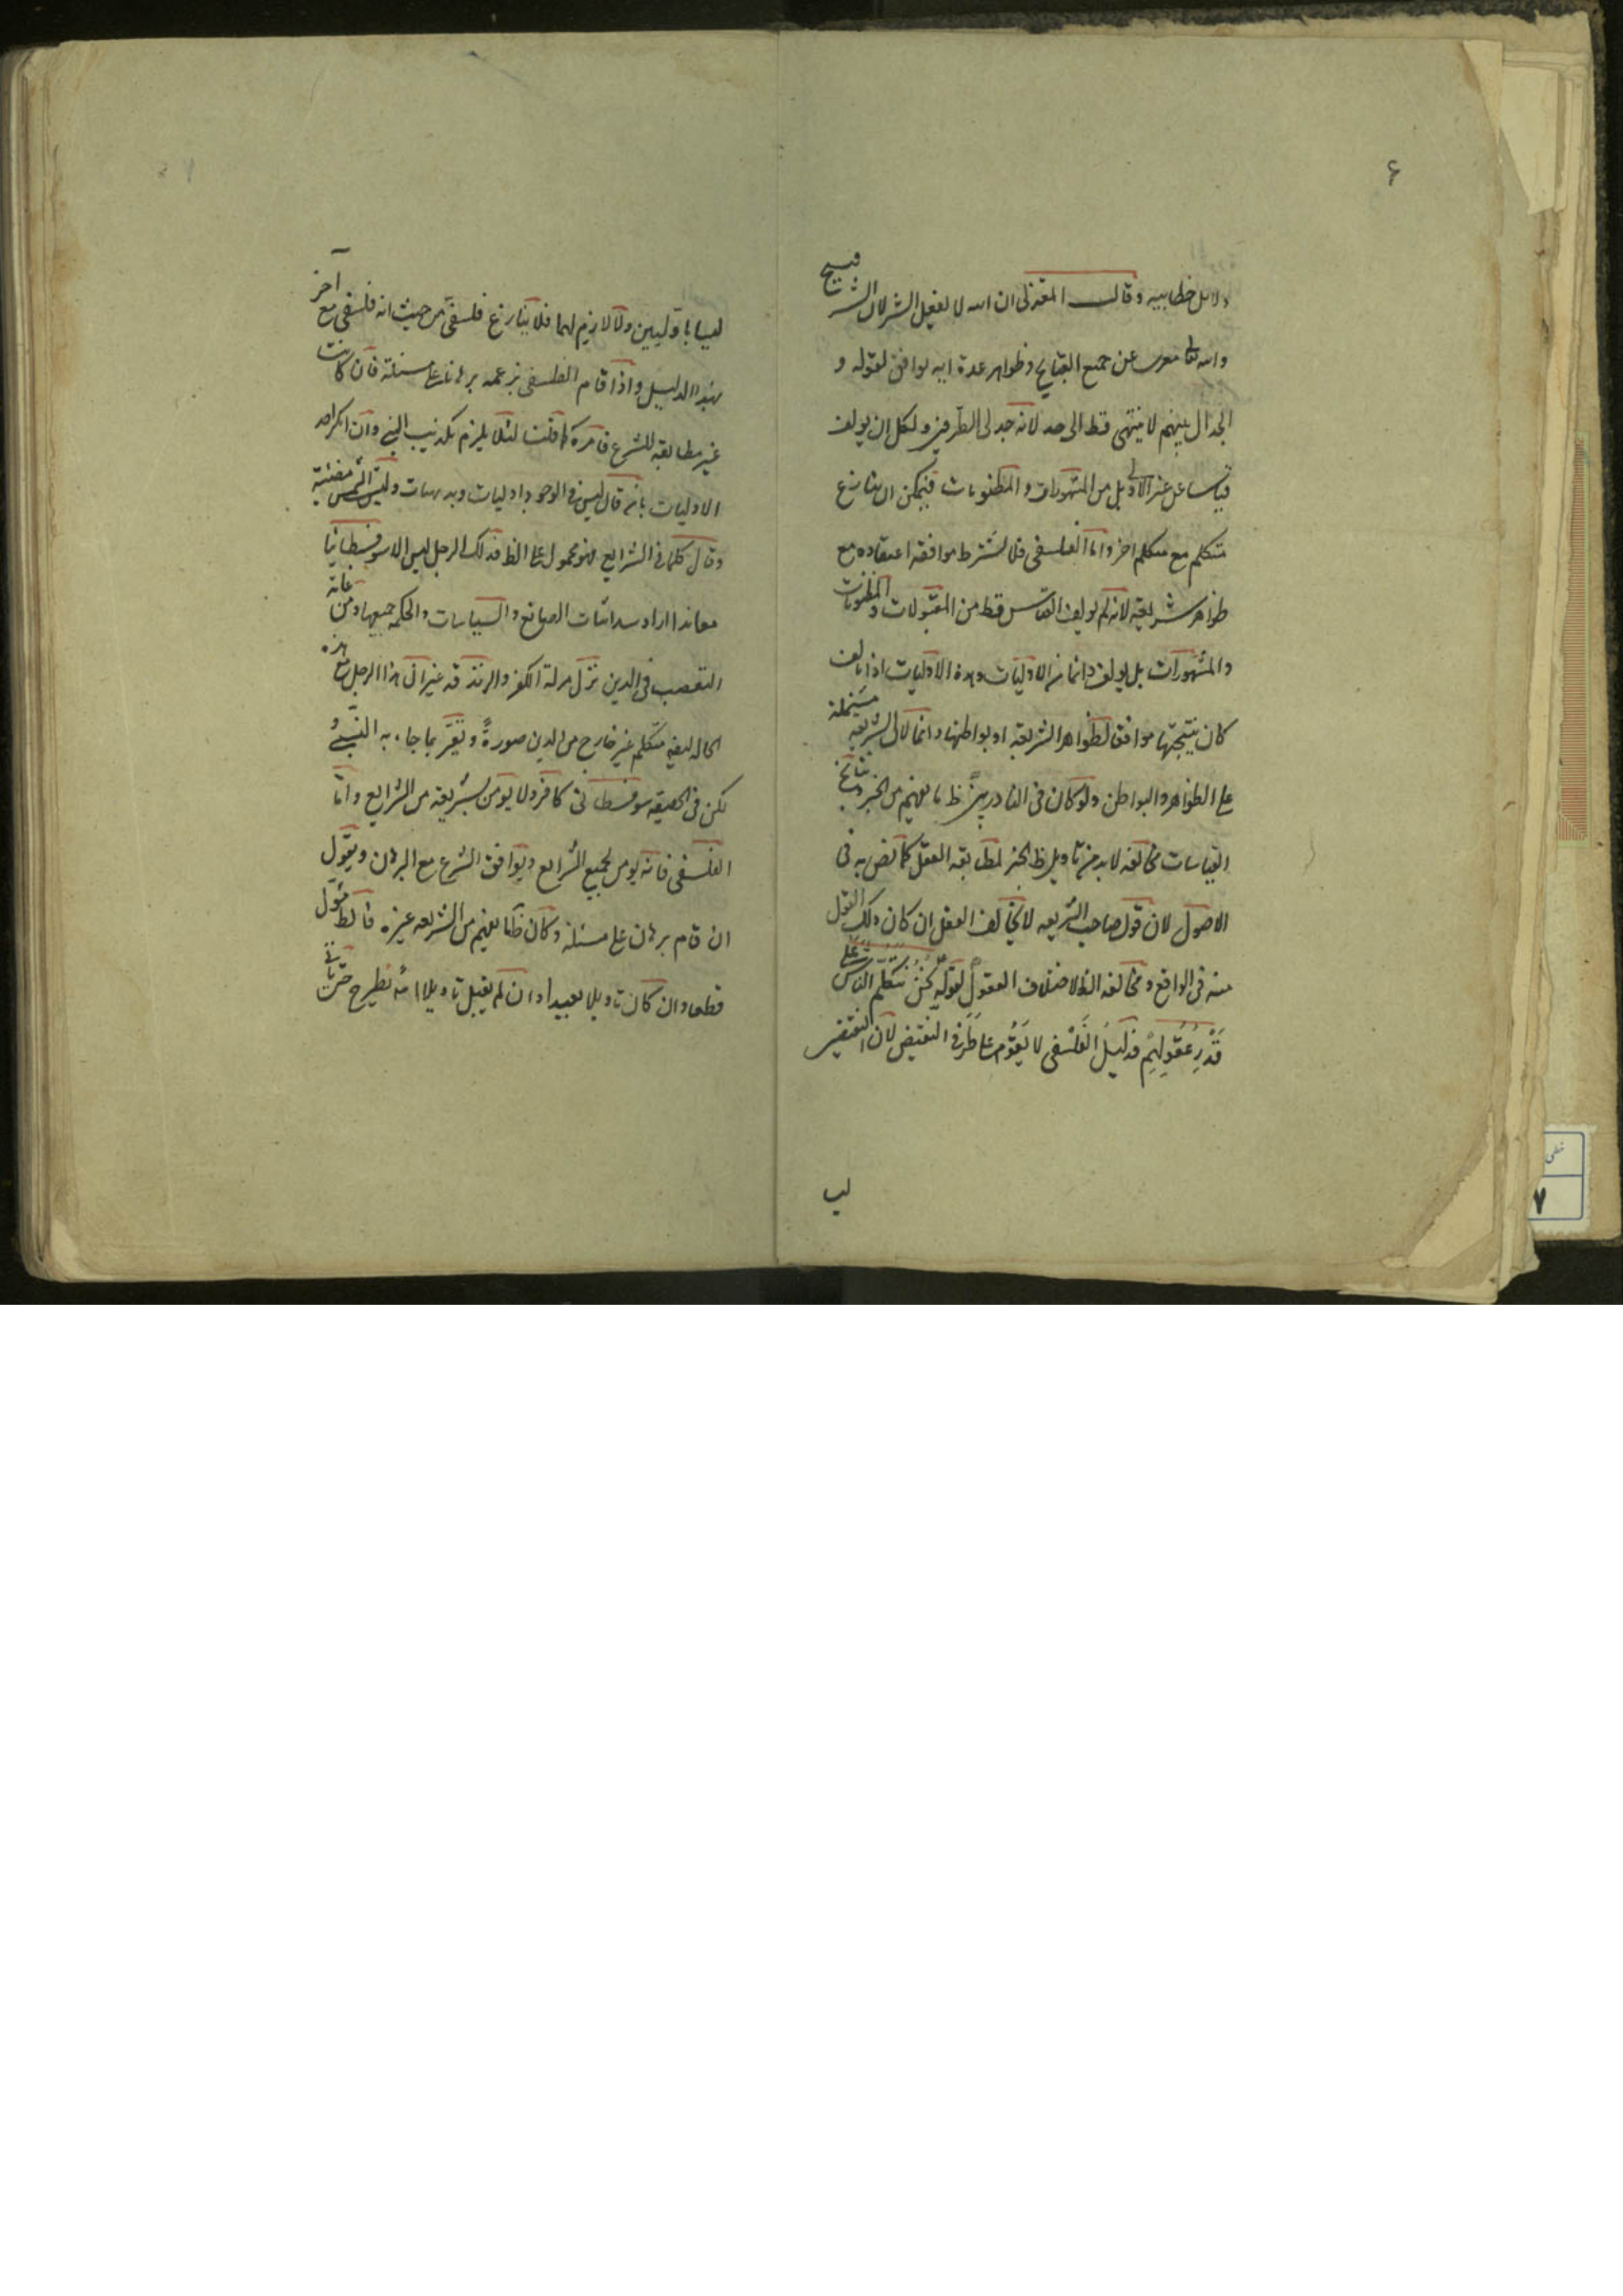 ۶
دلایل خطابیه وقالت المعتزلی ان الله لا یفعل الشر لان الشر قبیح
والله تعالی معری عن جمیع القبایح وظواهر عدة ایه یوافق لقوله و
الجدال بینهم لا ینتهی قط الی حد لانه جدلی الطرفین ولکل ان یولف
قیاسا عن غیر الاولی بل من المشهورات والمظنونات فیمکن ان ینازع
متکلم مع متکلم اخر واما الفلسفی فلا یشترط موافقة اعتقاده مع
ظواهر شریعته لانه لم یولف القیاس قط من المقبولات والمظنونات
والمشهورات بل یولف دائما من الاولیات وهذه الاولیات اذا تالف
کان نتیجتها موافق لظواهر الشریعة او بواطنها دائما لان الشریعه مشتملة
علی الظواهر والبواطن ولو کان فی النادر یری ظ ما یفهم من الخبر ونتائج
القیاسات مخالفه لابد من تاویل ظ الخبر لمطابقة العقل کما نص به فی
الاصول لان قول صاحب الشریعه لا یخالف العقل ان کان ذلک القول
منه فی الواقع ومخالفه الظ لاختلاف العقول لقوله نحن نتکلم الناس علی
قَدْرِ عُقُولِهِمْ فدلیل الفلسفی لا یقوم علی طرفی النقیض لان النقیضین
لیب
لیسا باولیین ولا لازم لهما فلا ینازع فلسفی من حیث انه فلسفی مع آخر
بهذا الدلیل واذا قام الفلسفی بزعمه برهانا علی مسئلة فان کانت
غیر مطابقة للشرع فامره کما قلت لئلا یلزم تکذیب النبی وان انکر احد
الاولیات بانه قال لیس فی الوجود اولیات وبدیهیات ولیس الشمس مضیئة
وقال کلما فی الشرایع فهو محمول علی الظ فذلک الرجل لیس الا سوفسطائیا
معاندا اراد سد اثبات الصانع والسیاسات والحکمة جمیعها ومن غایة
التعصب فی الدین نزل منزلة الکفر والزندقه غیر ان هذا الرجل مع هذه
الحاله لیفی متکلم غیر خارج من الدین صورةً ویقرّ بما جاء به النبیّ و
لکن فی الحقیقه سوفسطائی کافر ولا یومن بشریعة من الشرایع واما
الفلسفی فانه یومن لجمیع الشرایع ویوافق الشرع مع البرهان ویقول
ان قام برهان علی مسئلة وکان ظ ما یفهم من الشریعه غیره فالظ مؤول
قطعا وان کان تاویلا بعیدا وان لم یقبل تاویلا امّا یطرح حتی یاتی
خطی
۷